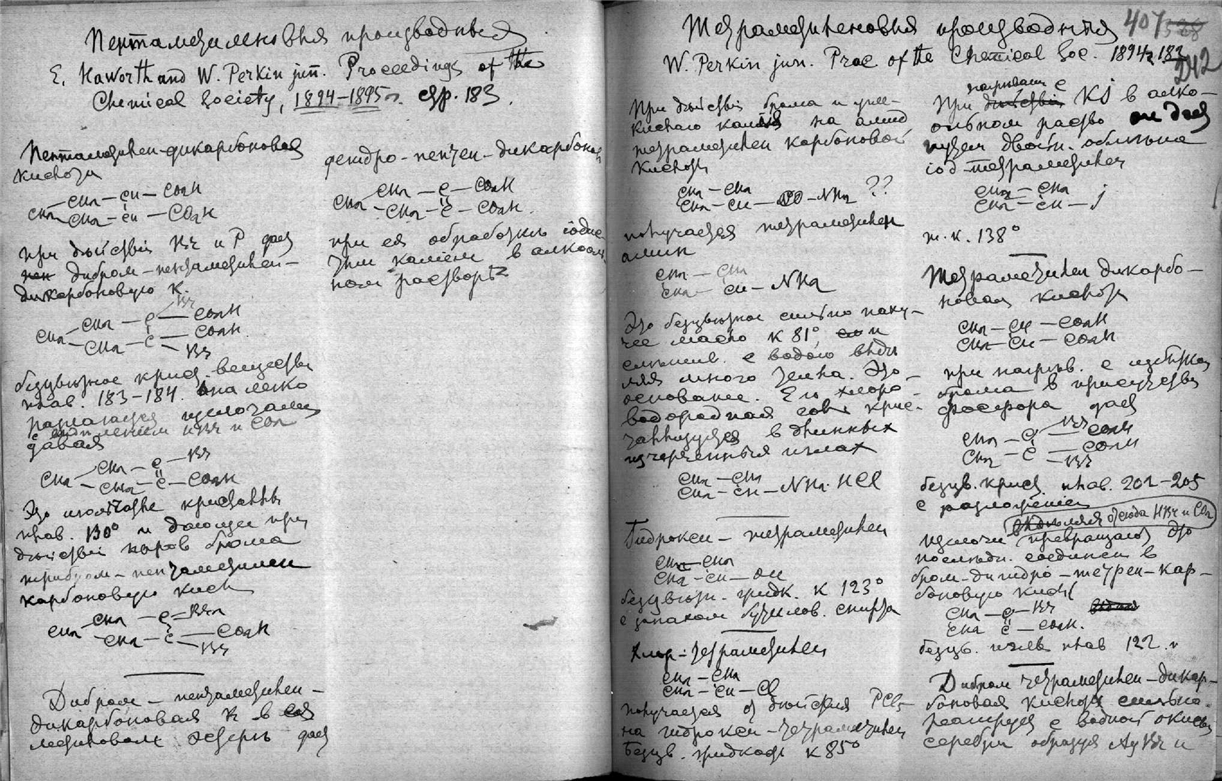 Пентаметиленовыя производныя
E. Haworth and W. Perkin jun. Proceedings of the
Chemical Society, 1894–1895 г. стр. 183.
Пентаметилен-дикарбоновая
кислота
CH2 – CH2 – CH – CO2H
CH2 – CH – CO2H
при действіи Br и P дает
дибром-пентаметилен-
дикарбоновую к.
CH2 – CH2 – C – Br
– CO2H
CH2 – C – CO2H
– Br
безцветное крист. вещество
плав. 183-184. Она легко
разлагается щелочами
с выделением HBr и CO2
давая
CH2 – CH2 – C – Br
CH2 – C – CO2H
Это иголчатые кристаллы
плав. 130° и дающие при
действіи паров брома
трибром-пентаметилен
карбоновую кисл
CH2 – CH2 – C = Br2
CH2 – C – CO2H
– Br
Дибром – пентаметилен –
дикарбоновая к в
метиловом эфире дает
дегидро-пентен-дикарбонов
CH2 – CH2 – C – CO2H
CH2 – C – CO2H.
при ея обработке іодис
тым каліем в алкоголь
ном растворе
407
242
Тетраметиленовыя производныя
W. Perkin jun. Proc of the Chemical Soc. 1894 г. 183
При действіи брома и
каліа на амид
тетраметилен карбоновой
кислоты
CH2 – CH2
CH2 – CH – CO – NH2 ??
получается тетраметилен
амин
CH2 – CH2
CH2 – CH – NH2
Это безцветное сильно паху-
чее масло к 81°, и
смешив. с водою выде
ляя много тепла. Это
основаніе. Его хлоро-
водородная соль крис-
таллизуется в длинных
иглах
CH2 – CH2
CH2 – CH – NH2 HCl
Гидрокси – тетраметилен
CH2 – CH2
CH2 – CH – OH
безцветн. жидк. к 123°
с запахом бутилов. спирта
Хлор-тетраметилен
CH2 – CH2
CH2 – CH – Cl
получается от действія PCl5
на гидрокси-тетраметилен
Безцв. жидкость к 85°
нагреваніи с
При действіи KJ в алко-
гольном раство он дает
іод-тетраметилен
CH2 – CH2
CH2 – CH – J
т. к. 138°
Тетраметилен дикарбо-
новая кислота
CH2 – CH – CO2H
CH2 – CH – CO2H
при нагрев. с избытком
брома в присутствіи
фосфора дает
CH2 – C – Br
– CO2H
CH2 – C – CO2H
– Br
безцв. крист. плав. 201-205
с разложеніем
отсюда HBr и CO2
щелочи превращают это
последн. соединен в
бром-дигидро-тетрен-кар-
боновую кислот
CH2 – C – Br
CH2 C – CO2H.
безцв. иглы плав 122.
Дибром тетраметилен-дикар-
боновая кислота сильно
реагирует с водной окисью
серебра образуя AgBr и